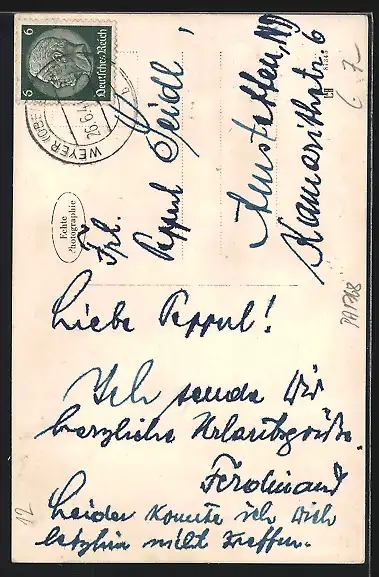 6 6
Deutsches Reich
WEYER
26.6.
Echte
Photographie
Frl.
Peppul Seidl,
Amstetten, ND
Kamarithstr. 6
Liebe Peppul!
Ich sende Dir
herzliche Urlaubsgrüße.
Ferdinand
Leider konnte ich Dich
letzhin nicht treffen.
12